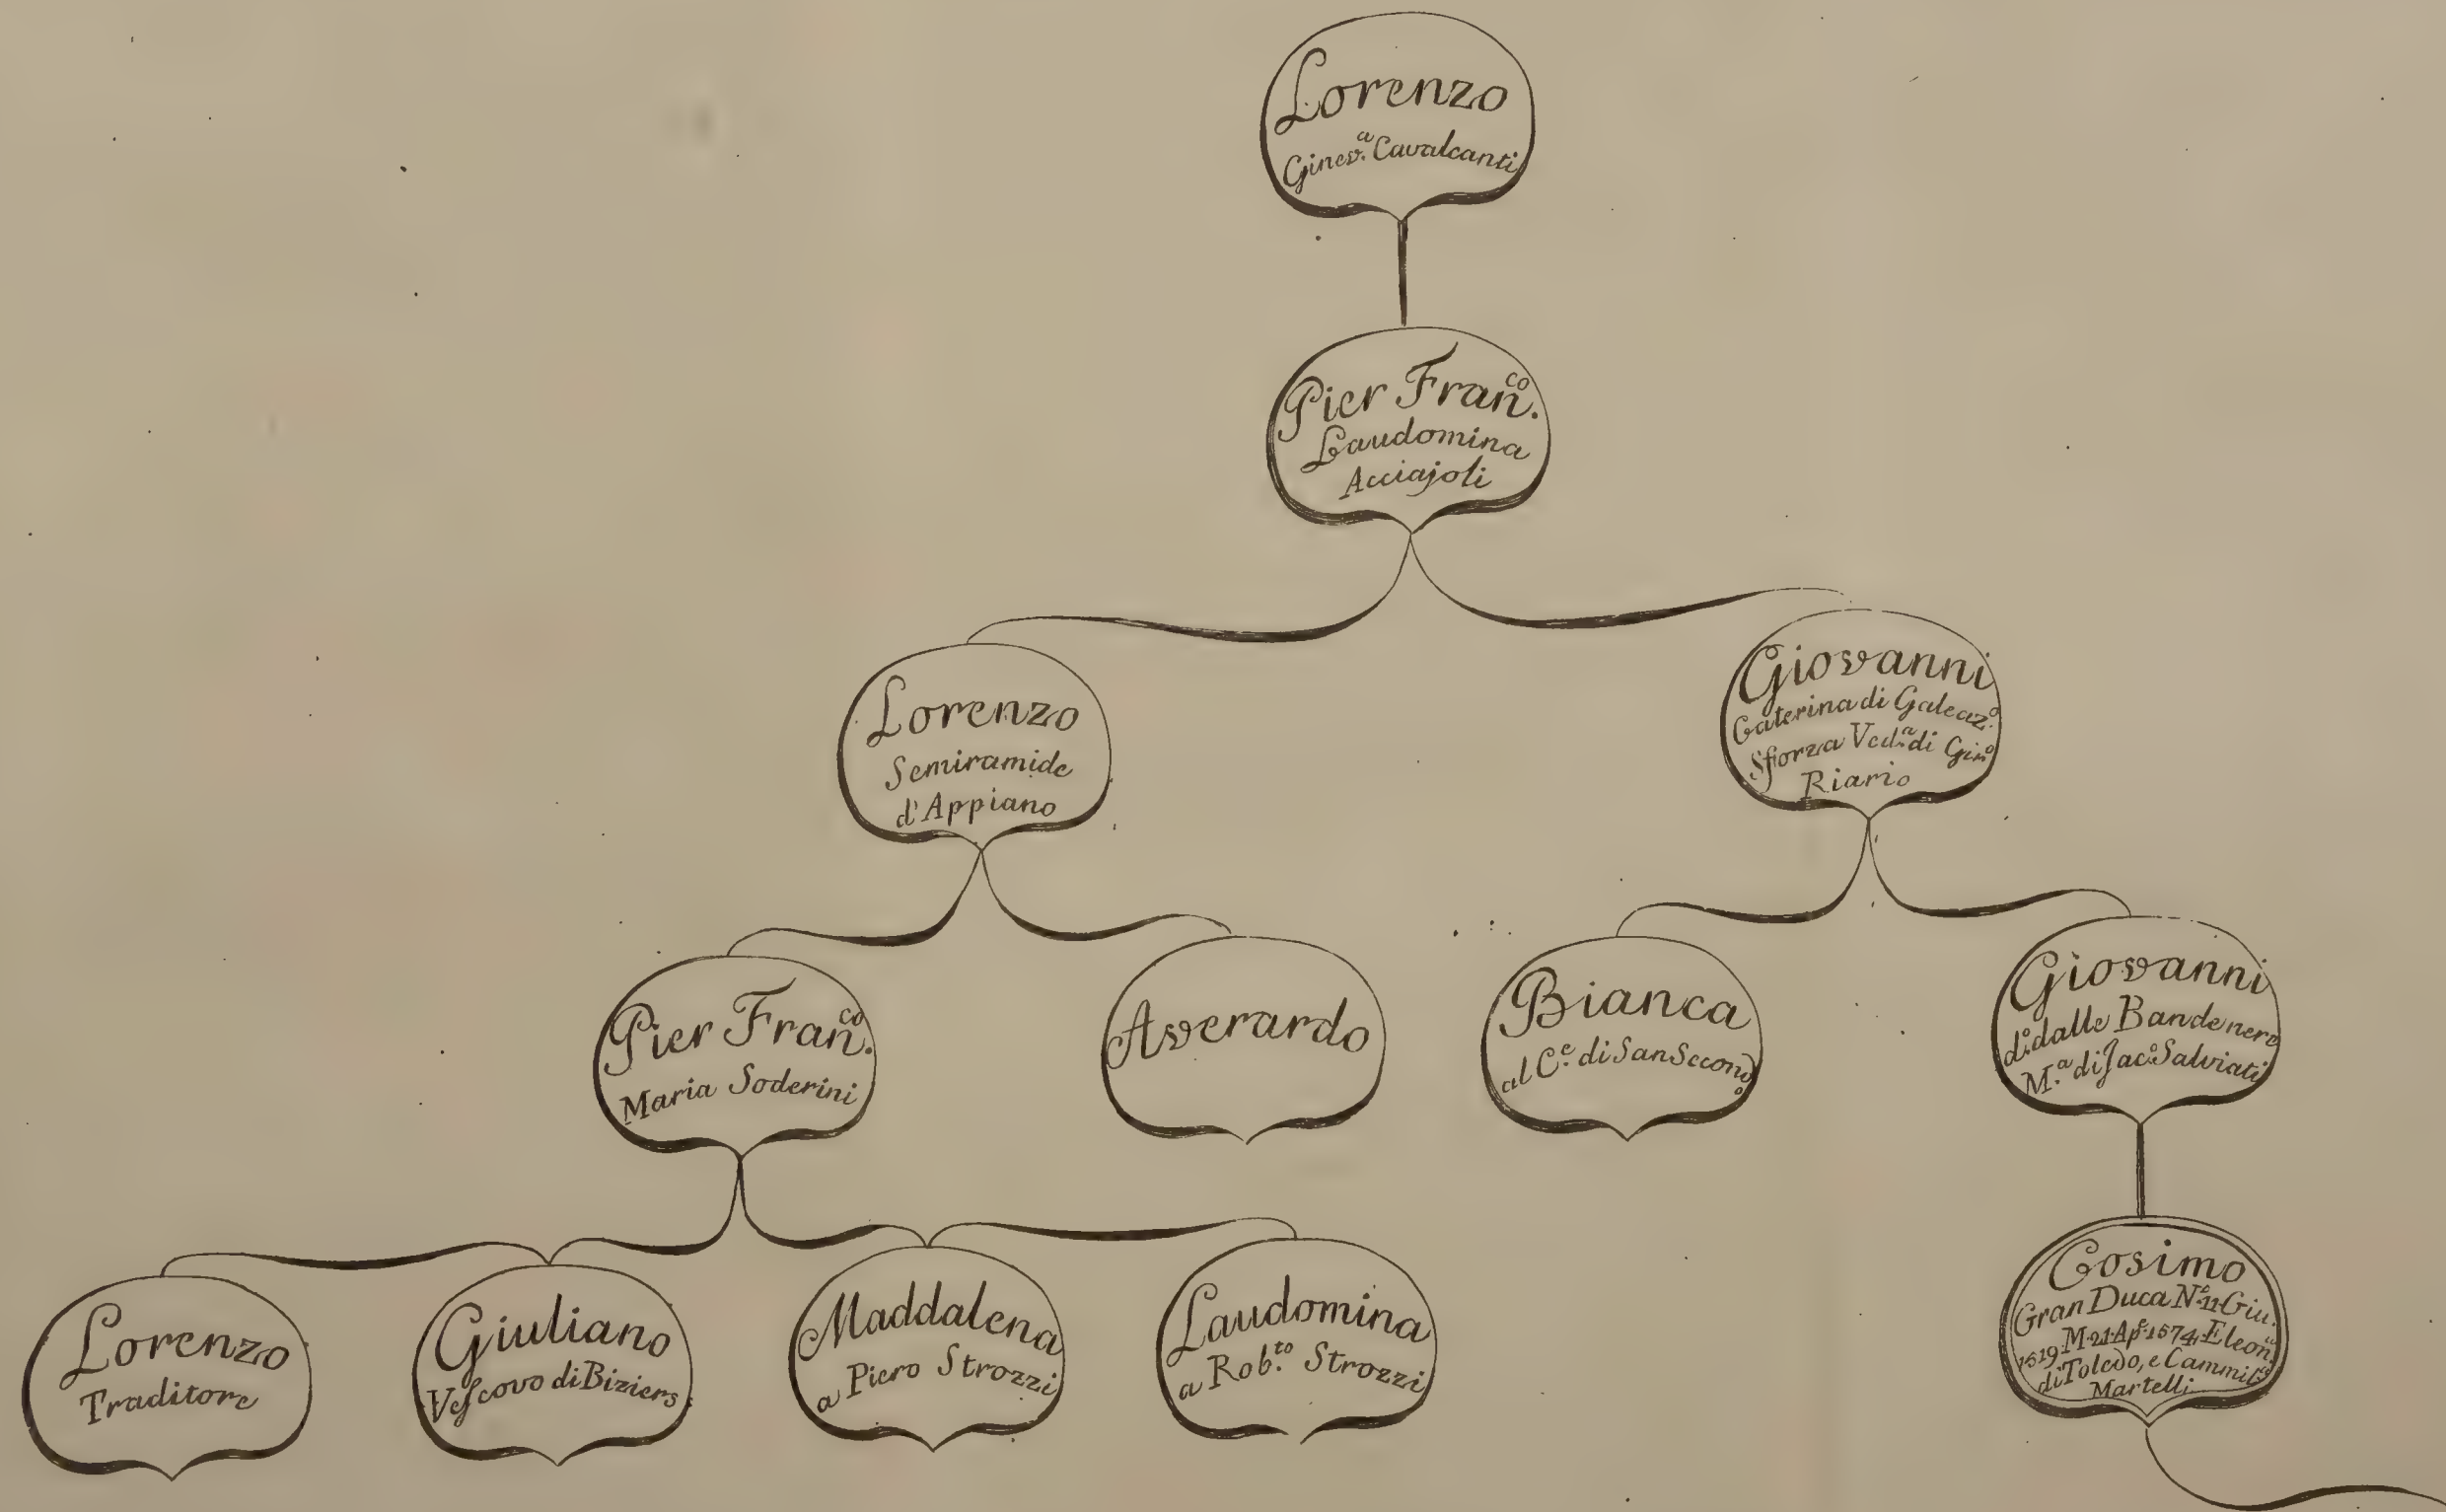 Lorenzo
Ginev.ª Cavalcanti
Pier Fran.co
Laudomina
Acciajoli
Lorenzo
Semiramide
d'Appiano
Giovanni
Caterina di Galeaz.o
Sforza Ved.ª di Gir.o
Riario
Pier Fran.co
Maria Soderini
Averardo
Bianca
al C.e di San Secondo
Giovanni
d.o dalle Bande nere
M.ª di Jac.o Salviati
Lorenzo
Traditore
Giuliano
Veſcovo di Biziers
Maddalena
a Piero Strozzi
Laudomina
a Rob.to Strozzi
Cosimo
Gran Duca N.o 11 Giu.
1519 M. 21 Ap.e 1574 Eleon.ra
di Toledo, e Cammil.a
Martelli